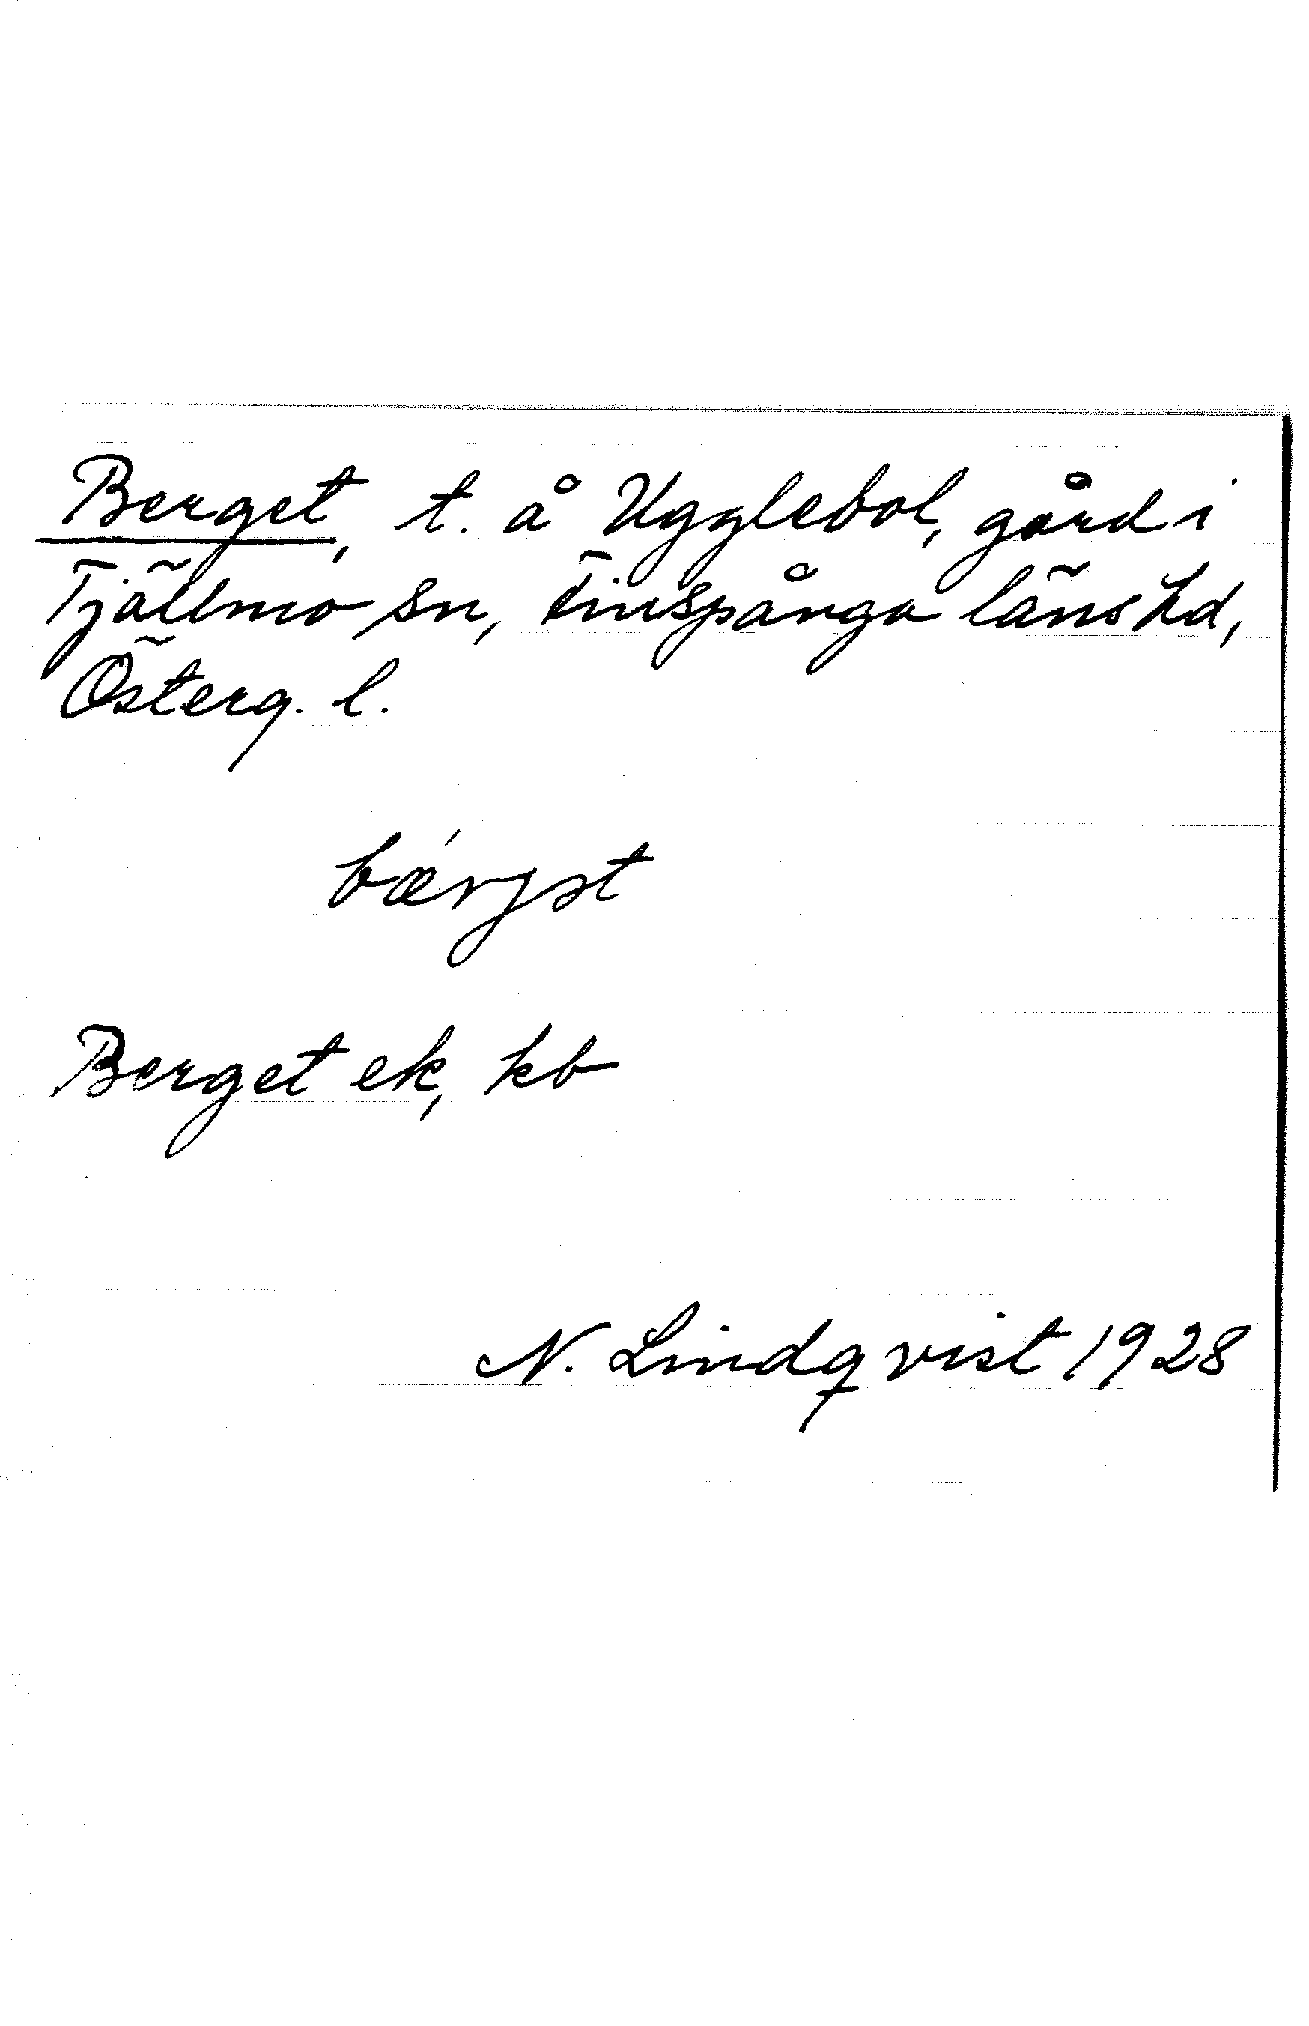 Berget, t. å Ugglebol, gård i
Tjällmo sn, Finspånga läns hd,
Österg. l.
bǽrjət
Berget ek, kb
N. Lindqvist 1928